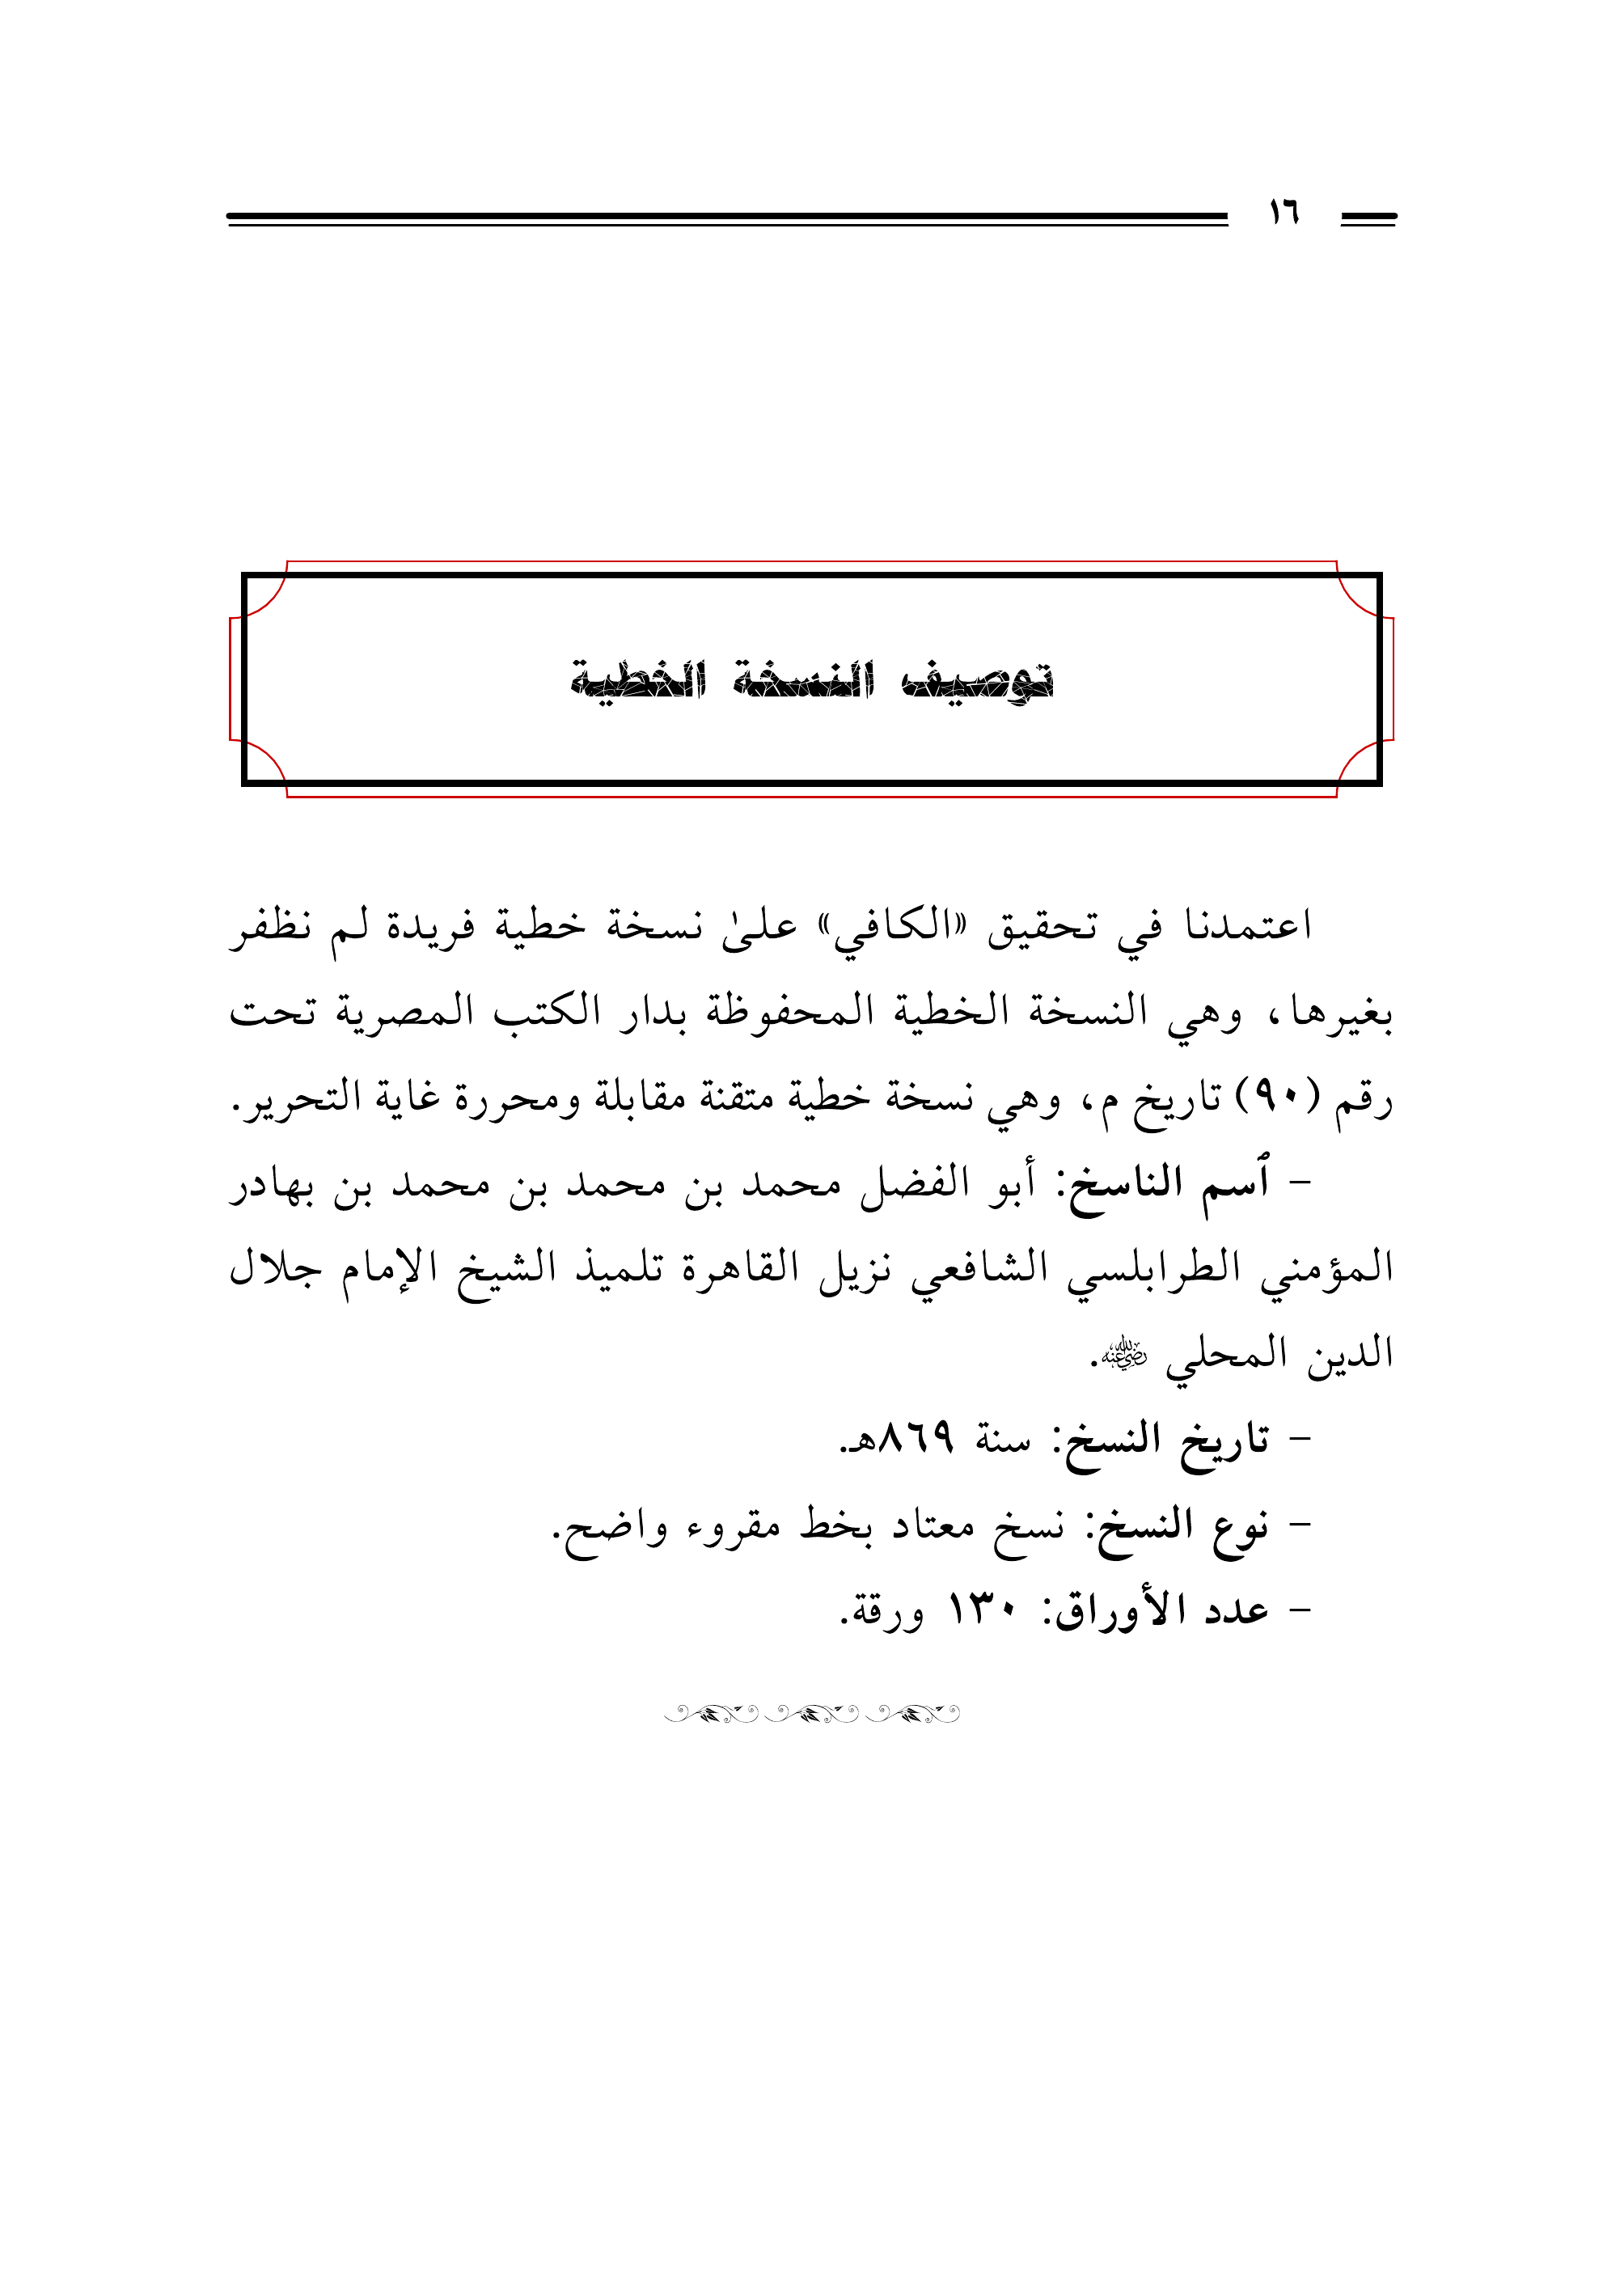 ١٦
توصيف النسخة الخطية
اعتمدنا في تحقيق «الكافي» علىٰ نسخة خطية فريدة لم نظفر
بغيرها، وهي النسخة الخطية المحفوظة بدار الكتب المصرية تحت
رقم (٩٠) تاريخ م، وهي نسخة خطية متقنة مقابلة ومحررة غاية التحرير.
- ٱسم الناسخ: أبو الفضل محمد بن محمد بن محمد بن بهادر
المؤمني الطرابلسي الشافعي نزيل القاهرة تلميذ الشيخ الإمام جلال
الدين المحلي رضي الله عنه.
- تاريخ النسخ: سنة ٨٦٩هـ.
- نوع النسخ: نسخ معتاد بخط مقروء واضح.
- عدد الأوراق: ١٣٠ ورقة.